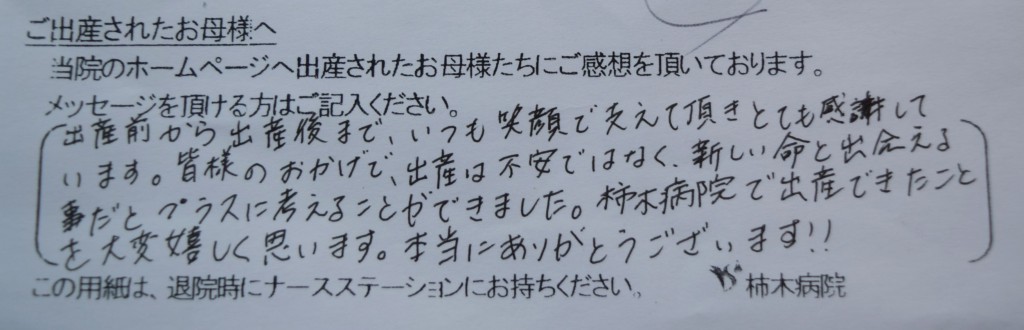 ご出産されたお母様へ
当院のホームページへ出産されたお母様たちにご感想を頂いております。
メッセージを頂ける方はご記入ください。
出産前から出産後まで、いつも笑顔で支えて頂きとても感謝して
います。皆様のおかげで、出産は不安ではなく、新しい命と出会える
事だとプラスに考えることができました。柿木病院で出産できたこと
を大変嬉しく思います。本当にありがとうございます!!
この用紙は、退院時にナースステーションにお持ちください。 柿木病院